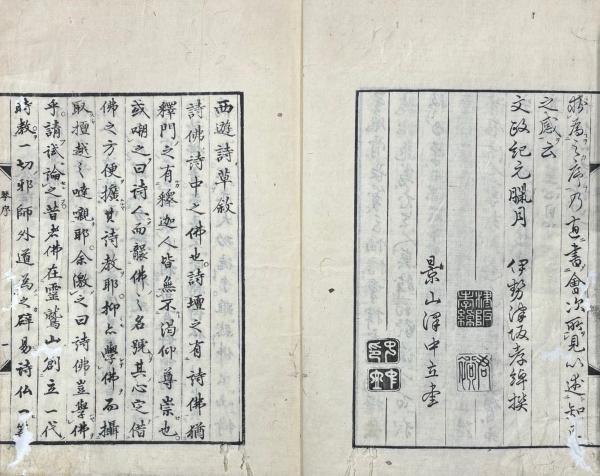 為之序乃直書會次所見以述知己
之感云
文政紀元臘月　伊勢津阪孝綽撰
景山澤中立書
西遊詩草敘
詩佛詩中之佛也詩壇之有詩佛猶
釋門之有釋迦人皆無不渴仰尊崇也
或嘲之曰詩人而釀佛之名號其心定借
佛之方便擴其詩教耶抑亦學佛而攝
取擅越之噠嚫耶余激之曰詩佛豈學佛
乎請試論之昔者佛在靈鷲山創立一代
時教一切邪師外道為之辟易詩仏一
琴序
一